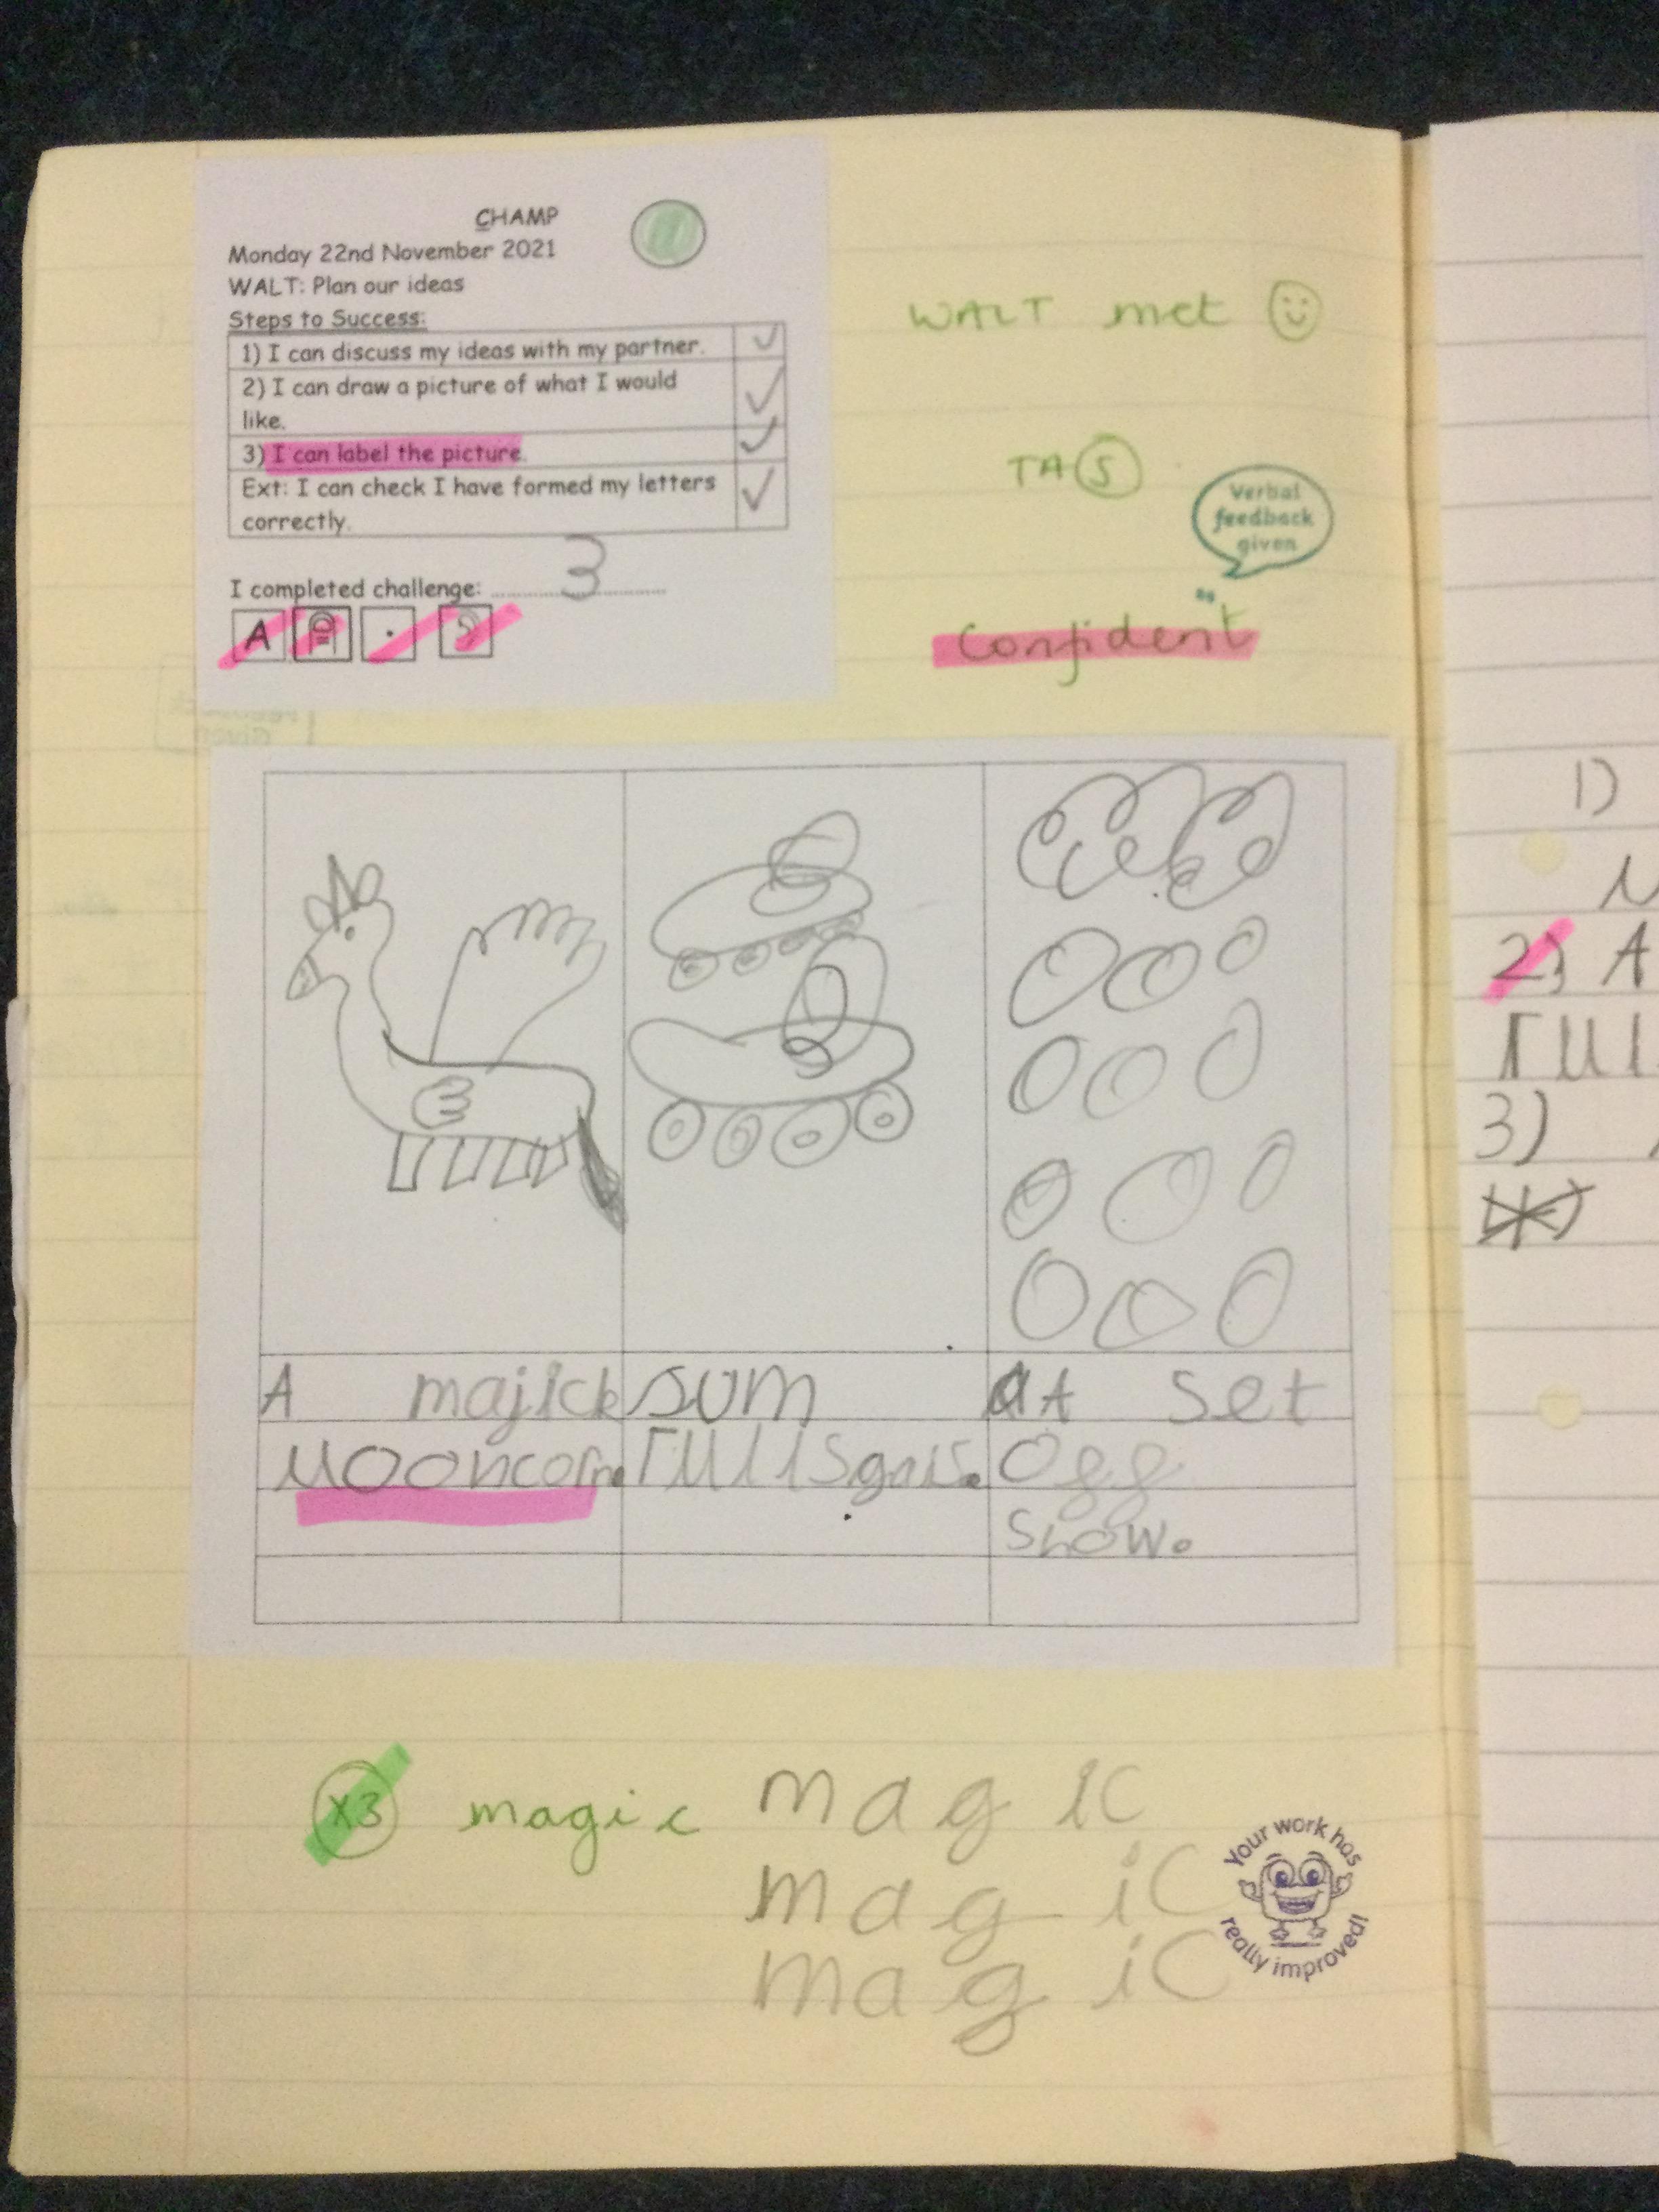 CHAMP
Monday 22nd November 2021
WALT: Plan our ideas
Steps to Success:
1) I can discuss my ideas with my partner.
2) I can draw a picture of what I would
like.
3) I can label the picture.
Ext: I can check I have formed my letters
correctly.
I completed challenge: 3
A
WALT met
TA S
Verbal
feedback
given
Confident
A majick
uooncorn.
sum
rullsgais.
At set
Ogg
Show.
x3 magic magic
magic
magic
Your work has
really improved!
1)
2) A
rull
3)